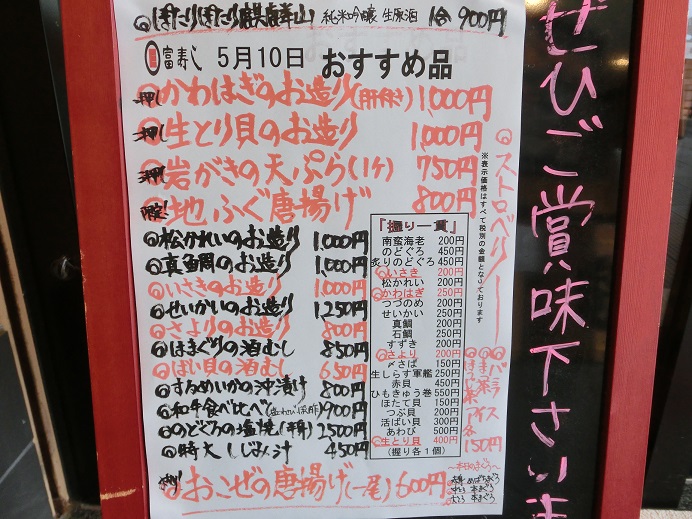 ぽたりぽたり麒麟山 純米吟醸 生原酒 1合 900円
富寿し 5月10日 おすすめ品
押し かわはぎのお造り(肝付き) 1,000円
押し 生とり貝のお造り 1,000円
岩がきの天ぷら(1ヶ) 750円
限定 地ふぐ唐揚げ 800円
松かれいのお造り 1,000円
真鯛のお造り 1,000円
いさきのお造り 1,000円
せいかいのお造り 1,250円
さよりのお造り 800円
はまぐりの酒むし 850円
ばい貝の酒むし 650円
するめいかの沖漬け 800円
和牛食べ比べ 900円
のどぐろの塩焼き(半身) 2500円
特大しじみ汁 450円
おこぜの唐揚げ(一尾) 600円
『握り一貫』
南蛮海老 200円
のどぐろ 450円
炙りのどぐろ 450円
いさき 200円
松かれい 200円
かわはぎ 250円
つづのめ 200円
せいかい 250円
真鯛 200円
石鯛 200円
すずき 200円
さより 200円
〆さば 150円
生しらす軍艦 250円
赤貝 450円
ひもきゅう巻 550円
ほたて貝 150円
つぶ貝 200円
活ばい貝 300円
あわび 500円
生とり貝 400円
(握り各1個)
※表示価格はすべて税別の金額となっております
ストロベリー
アイス
各150円
〜本日のまぐろ〜
ぜひご賞味下さいま